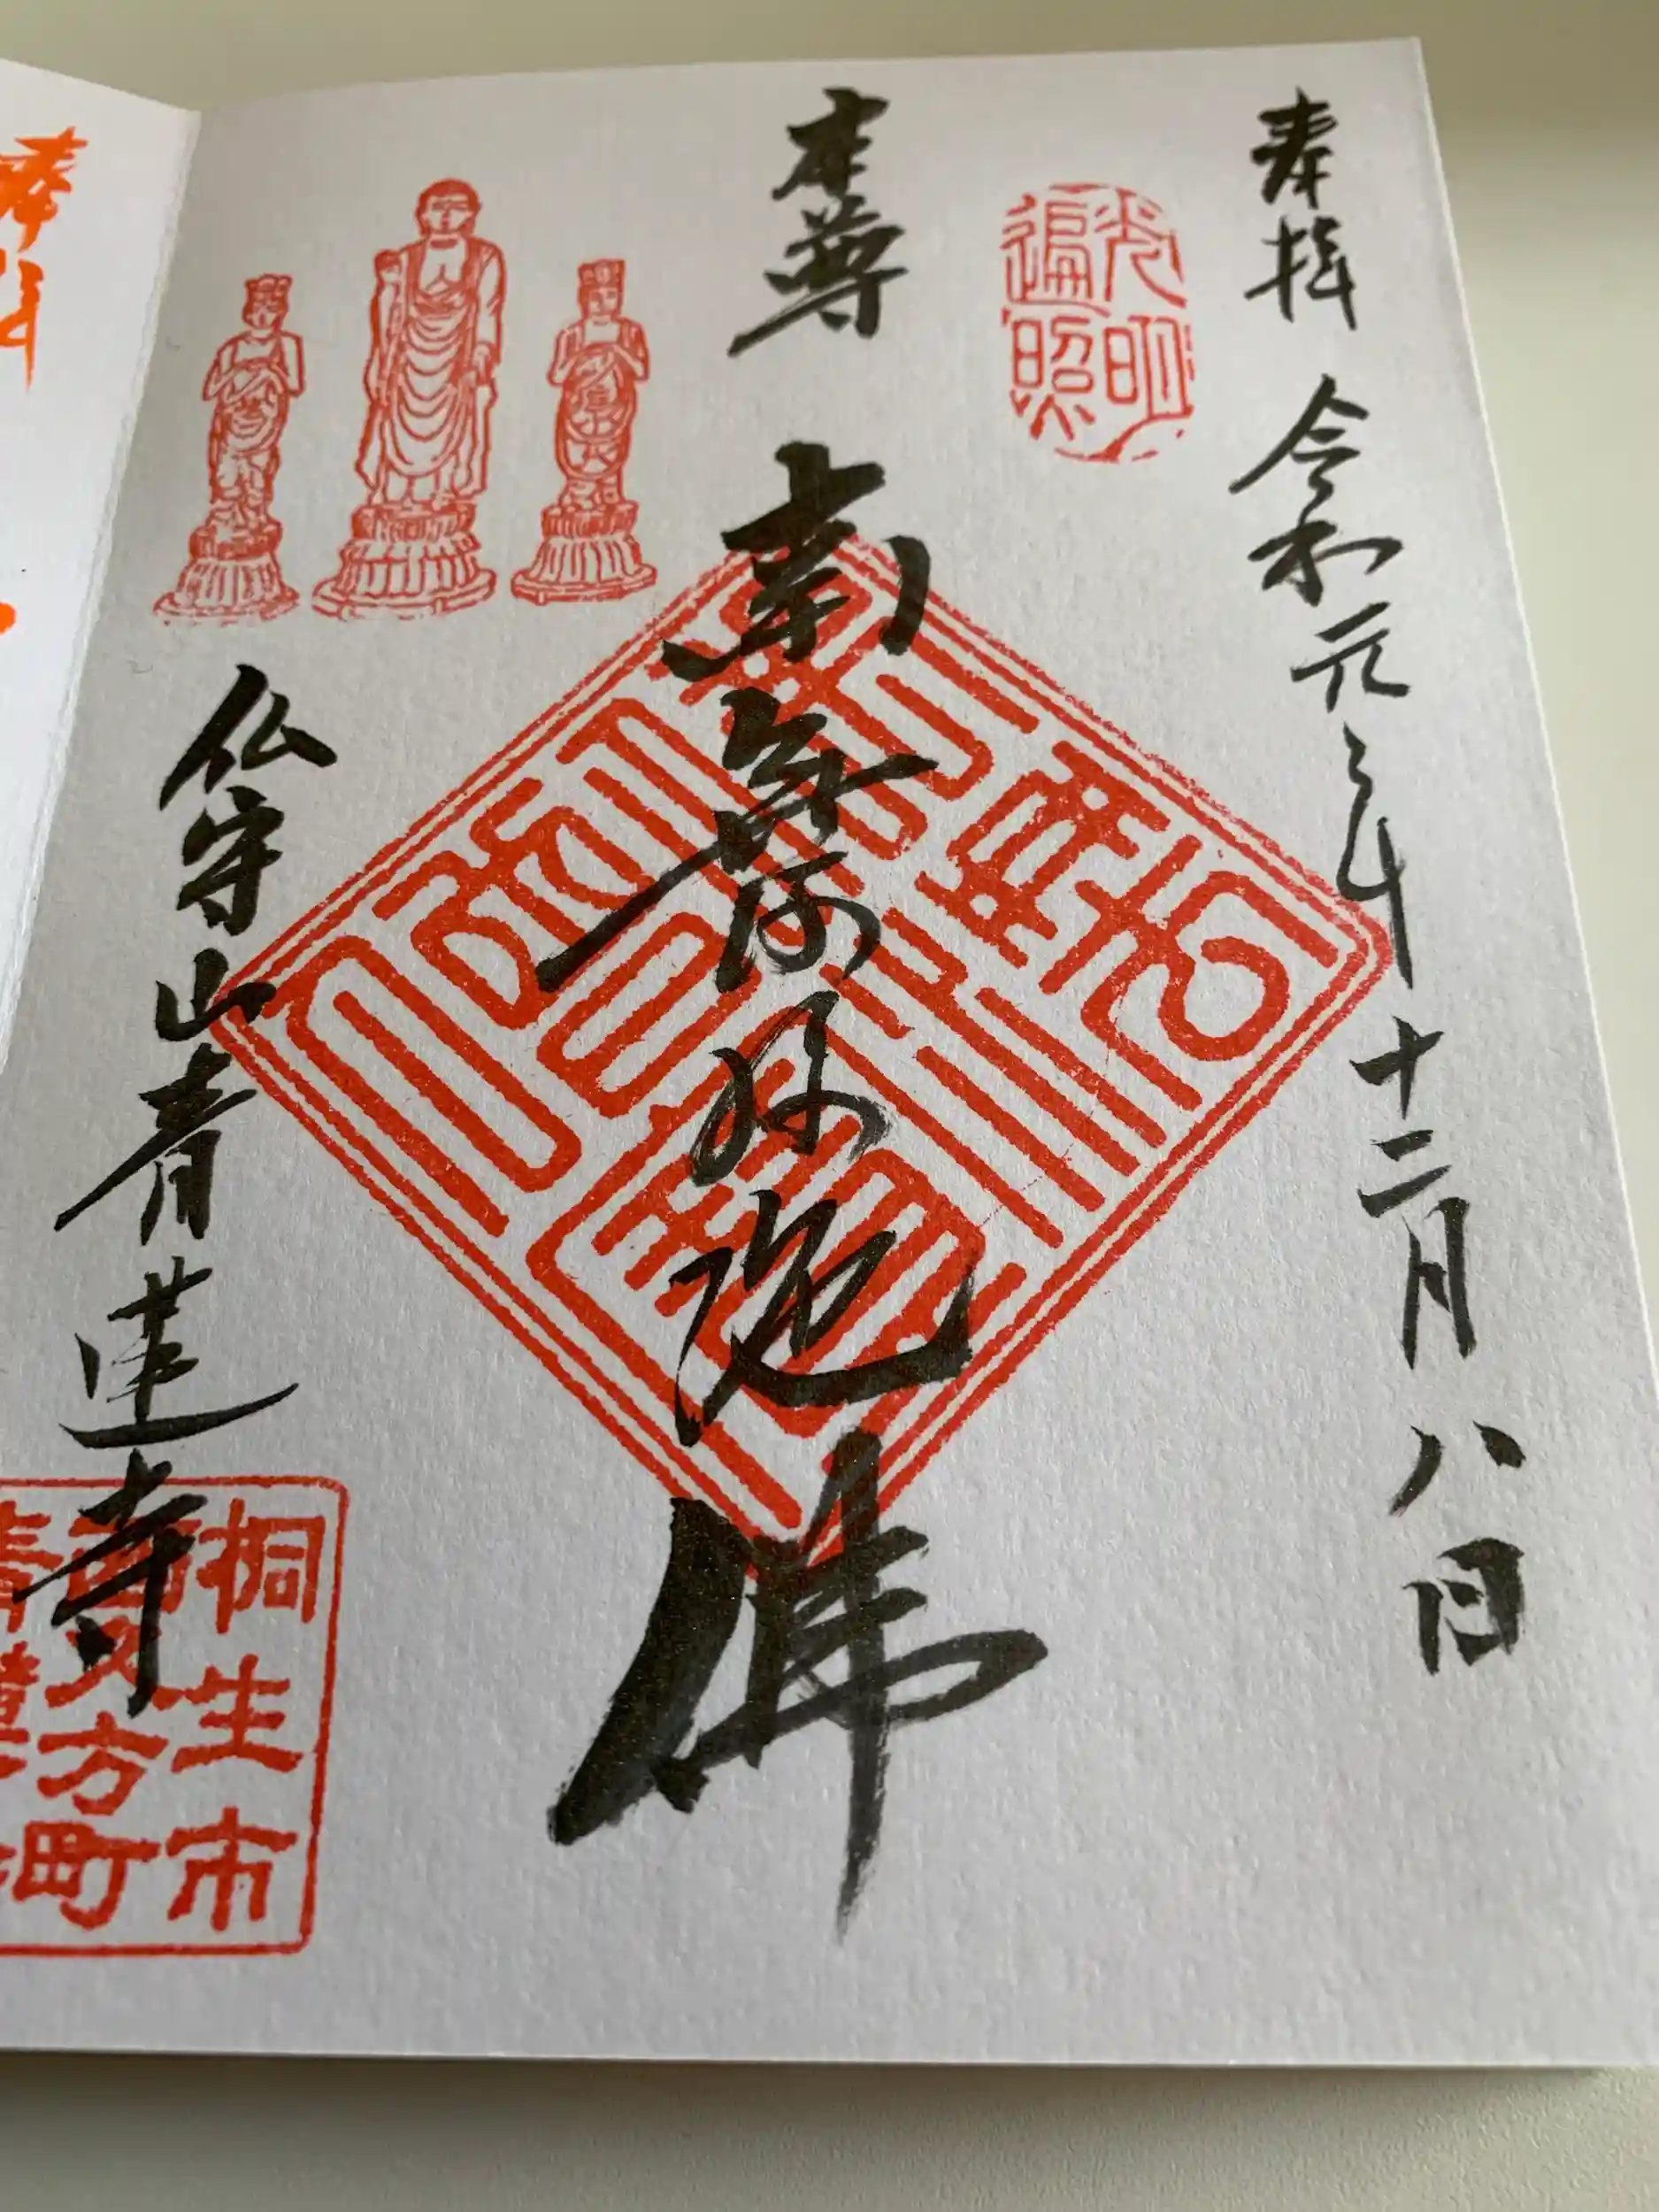 奉拝 令和元年十二月八日
光明遍照
本尊 南無阿弥陀佛
仏守山青蓮寺
桐生市
西久方町
奉拝